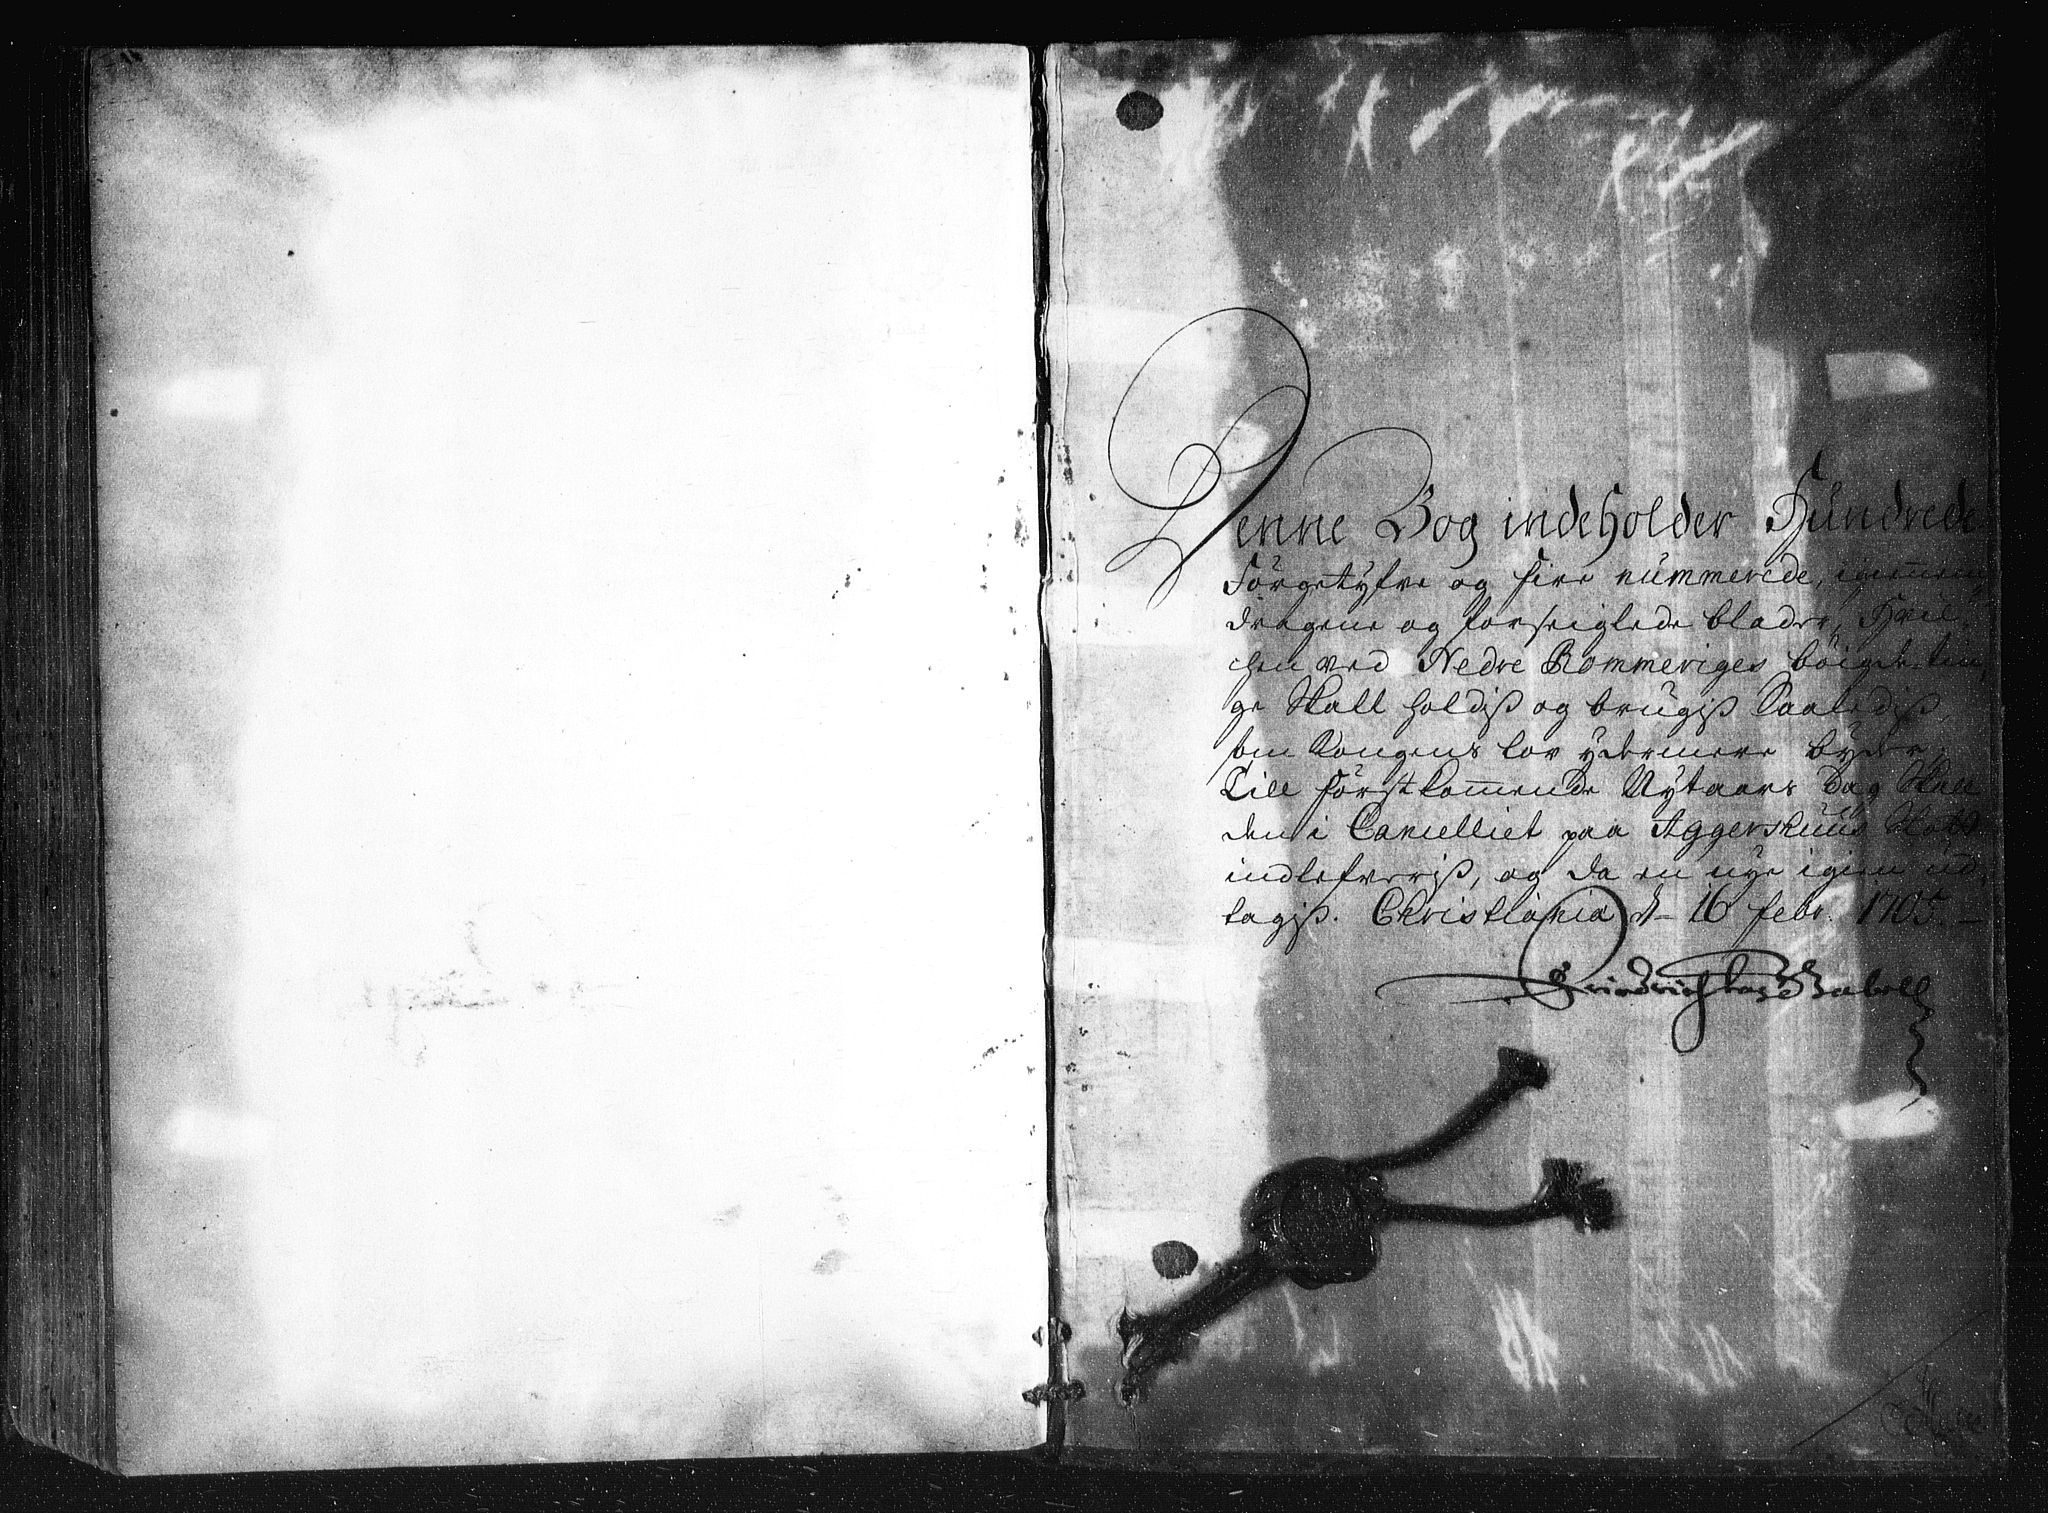 Denne Bog indeholder Hundrede
Förgetyfve og fire nummerede, igiennem,
dragene og forseiglede blade, Hvil-
chen ved Nedre Rommeriges böigde-tin,
ge skall holdiß og brugiß Saaledis,
som Kongens lov ydermere byder,
Till förstkommende Nytaars Dag skall
den i Cancelliet paa Aggershuus Slott
indlefveriß, og da en nye igien ud,
tagiß. Christiania d 16 febr. 1705.
Friedrich Gabell